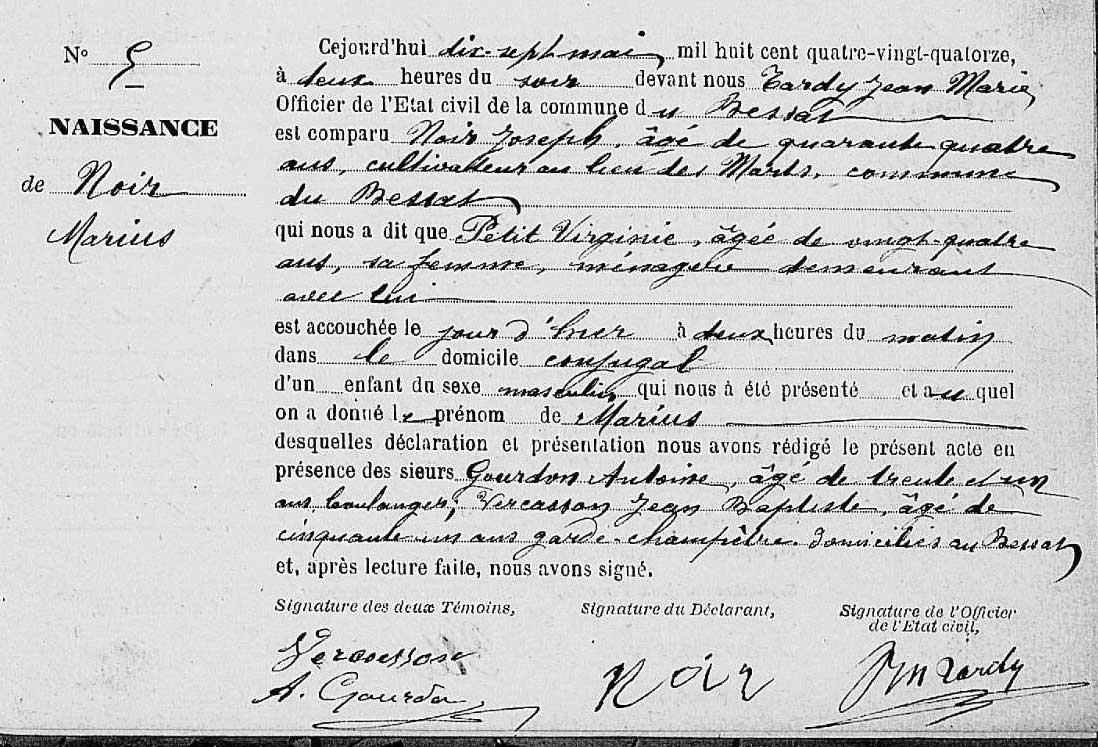 N° 5
NAISSANCE
de Noir
Marius
Cejourd'hui dix-sept mai, mil huit cent quatre-vingt-quatorze,
à deux heures du soir devant nous Tardy Jean Marie,
Officier de l'Etat civil de la commune du Bessat
est comparu Noir Joseph, âgé de quarante quatre
ans, cultivateur au lieu des Marts, commune
du Bessat
qui nous a dit que Petit Virginie, âgée de vingt-quatre
ans, sa femme, ménagère demeurant
avec lui
est accouchée le jour d'hier à deux heures du matin
dans le domicile conjugal
d'un enfant du sexe masculin qui nous à été présenté et au quel
on a donué le prénom de Marius
desquelles déclaration et présentation nous avons rédigé le présent acte en
présence des sieurs Gourdon Antoine, âgé de trente et un
ans boulanger, Vercasson Jean Baptiste, âgé de
cinquante un ans garde-champêtre. domiciliés au Bessat
et, après lecture faite, nous avons signé.
Signature des deux Témoins, Signature du Déclarant, Signature de l'Officier
de l'Etat civil,
Vercasson
A. Gourdon
Noir
JM Tardy